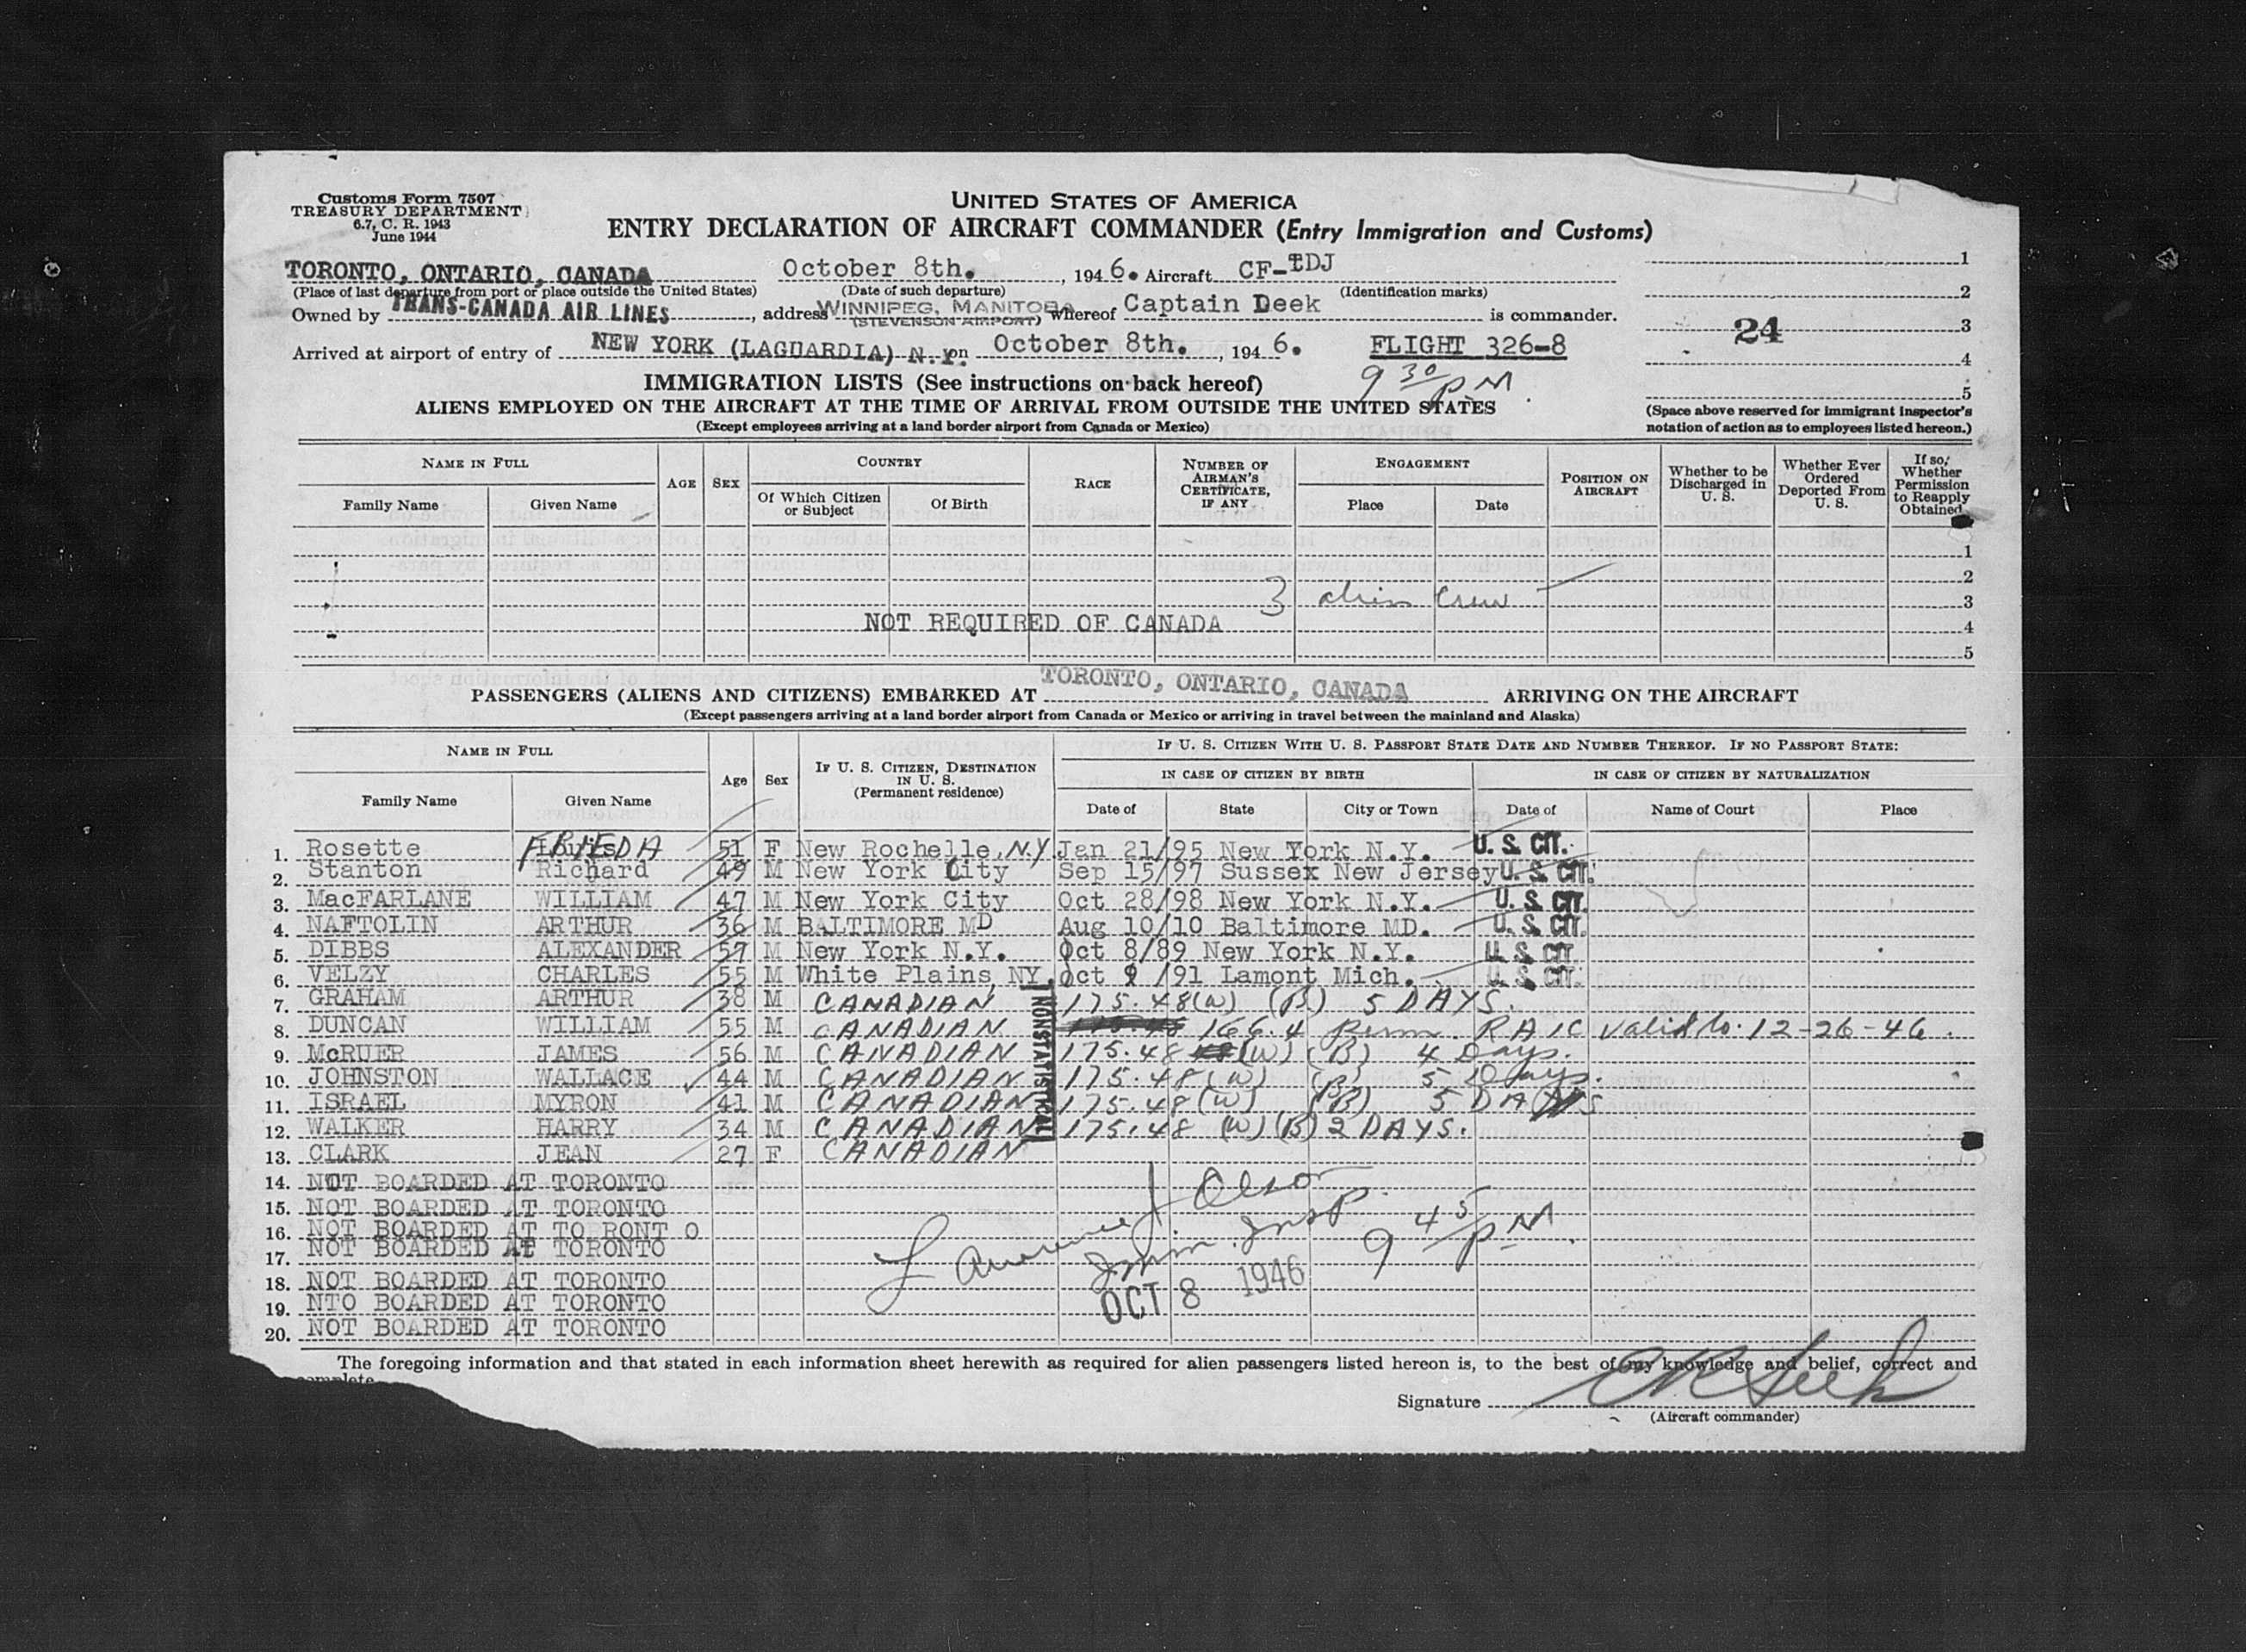 Customs Form 7507
TREASURY DEPARTMENT
6.7, C. R. 1943
June 1944
UNITED STATES OF AMERICA
ENTRY DECLARATION OF AIRCRAFT COMMANDER (Entry Immigration and Customs)
TORONTO, ONTARIO, CANADA October 8th. , 194 6. Aircraft CF-TDJ 1
(Place of last departure from port or place outside the United States) (Date of such departure) (Identification marks) 2
Owned by TRANS-CANADA AIR LINES , address WINNIPEG, MANITOBA (STEVENSON AIRPORT) whereof Captain Deek is commander. 24 3
Arrived at airport of entry of NEW YORK (LAGUARDIA) N.Y. on October 8th. , 194 6. FLIGHT 326-8 4
IMMIGRATION LISTS (See instructions on back hereof) 9 30/PM 5
ALIENS EMPLOYED ON THE AIRCRAFT AT THE TIME OF ARRIVAL FROM OUTSIDE THE UNITED STATES (Space above reserved for immigrant inspector's
(Except employees arriving at a land border airport from Canada or Mexico) notation of action as to employees listed hereon.)
NAME IN FULL AGE SEX COUNTRY RACE NUMBER OF AIRMAN'S CERTIFICATE, IF ANY ENGAGEMENT POSITION ON AIRCRAFT Whether to be Discharged in U. S. Whether Ever Ordered Deported From U. S. If so, Whether Permission to Reapply Obtained
Family Name Given Name Of Which Citizen or Subject Of Birth Place Date
1
2
3 alien Crew 3
NOT REQUIRED OF CANADA 4
5
PASSENGERS (ALIENS AND CITIZENS) EMBARKED AT TORONTO, ONTARIO, CANADA ARRIVING ON THE AIRCRAFT
(Except passengers arriving at a land border airport from Canada or Mexico or arriving in travel between the mainland and Alaska)
NAME IN FULL Age Sex IF U. S. CITIZEN, DESTINATION IN U. S. (Permanent residence) IF U. S. CITIZEN WITH U. S. PASSPORT STATE DATE AND NUMBER THEREOF. IF NO PASSPORT STATE:
IN CASE OF CITIZEN BY BIRTH IN CASE OF CITIZEN BY NATURALIZATION
Family Name Given Name Date of State City or Town Date of Name of Court Place
1. Rosette FRIEDA 51 F New Rochelle, N.Y. Jan 21/95 New York N.Y. U. S. CIT.
2. Stanton Richard 49 M New York City Sep 15/97 Sussex New Jersey U. S. CIT.
3. MacFARLANE WILLIAM 47 M New York City Oct 28/98 New York N.Y. U. S. CIT.
4. NAFTOLIN ARTHUR 36 M BALTIMORE MD Aug 10/10 Baltimore MD. U. S. CIT.
5. DIBBS ALEXANDER 57 M New York N.Y. Oct 8/89 New York N.Y. U. S. CIT.
6. VELZY CHARLES 55 M White Plains NY. Oct 9 /91 Lamont Mich. U. S. CIT.
7. GRAHAM ARTHUR 38 M CANADIAN 175.48(W) (B) 5 DAYS.
8. DUNCAN WILLIAM 55 M CANADIAN 166.4 perm. RAIC valid to. 12-26-46.
9. McRUER JAMES 56 M CANADIAN 175.48 (W) (B) 4 Days.
10. JOHNSTON WALLACE 44 M CANADIAN 175.48(W) (B) 5 Days.
11. ISRAEL MYRON 41 M CANADIAN 175.48(W) (B) 5 DAYS
12. WALKER HARRY 34 M CANADIAN 175.48 (W)(B) 2 DAYS.
NONSTATISTICAL
13. CLARK JEAN 27 F CANADIAN
14. NOT BOARDED AT TORONTO
15. NOT BOARDED AT TORONTO
16. NOT BOARDED AT TO RONT O
17. NOT BOARDED AT TORONTO
Lawrence J Olson
Imm. Insp.
9 45/PM
18. NOT BOARDED AT TORONTO
19. NTO BOARDED AT TORONTO
OCT 8 1946
20. NOT BOARDED AT TORONTO
The foregoing information and that stated in each information sheet herewith as required for alien passengers listed hereon is, to the best of my knowledge and belief, correct and
complete
Signature
(Aircraft commander)